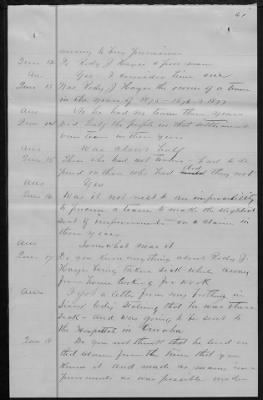 41
money to buy provisions
Ques 12 Is Rody J Hayes a poor man
Ans Yes I consider him such
Ques 13 Was Rody J Hayes the owner of a team
in the years of 1875 - 1876 & 1877
Ans No he had no team those years
Ques 14 Did half the people in that settlement
own teams in those years
Ans Was about half
Ques 15 Those who had not teams had to de
pend on those who had did they not
Ans Yes
Ques 16 Was it not next to an impossibility
to procure a team to make the slightest
sort of improvements on a claim in
those years
Ans Somewhat was it
Ques 17 Do you know anything about Rody J
Hayes being taken sick while away
from home looking for work
Ans I got a letter from my brother in
Sioux City stating that he was there
sick - and was going to be sent to
the Hospital in Omaha
Ques 18 Do you not think that he lived on
that claim from the time that you
knew it and made as many im
provements as was possible under